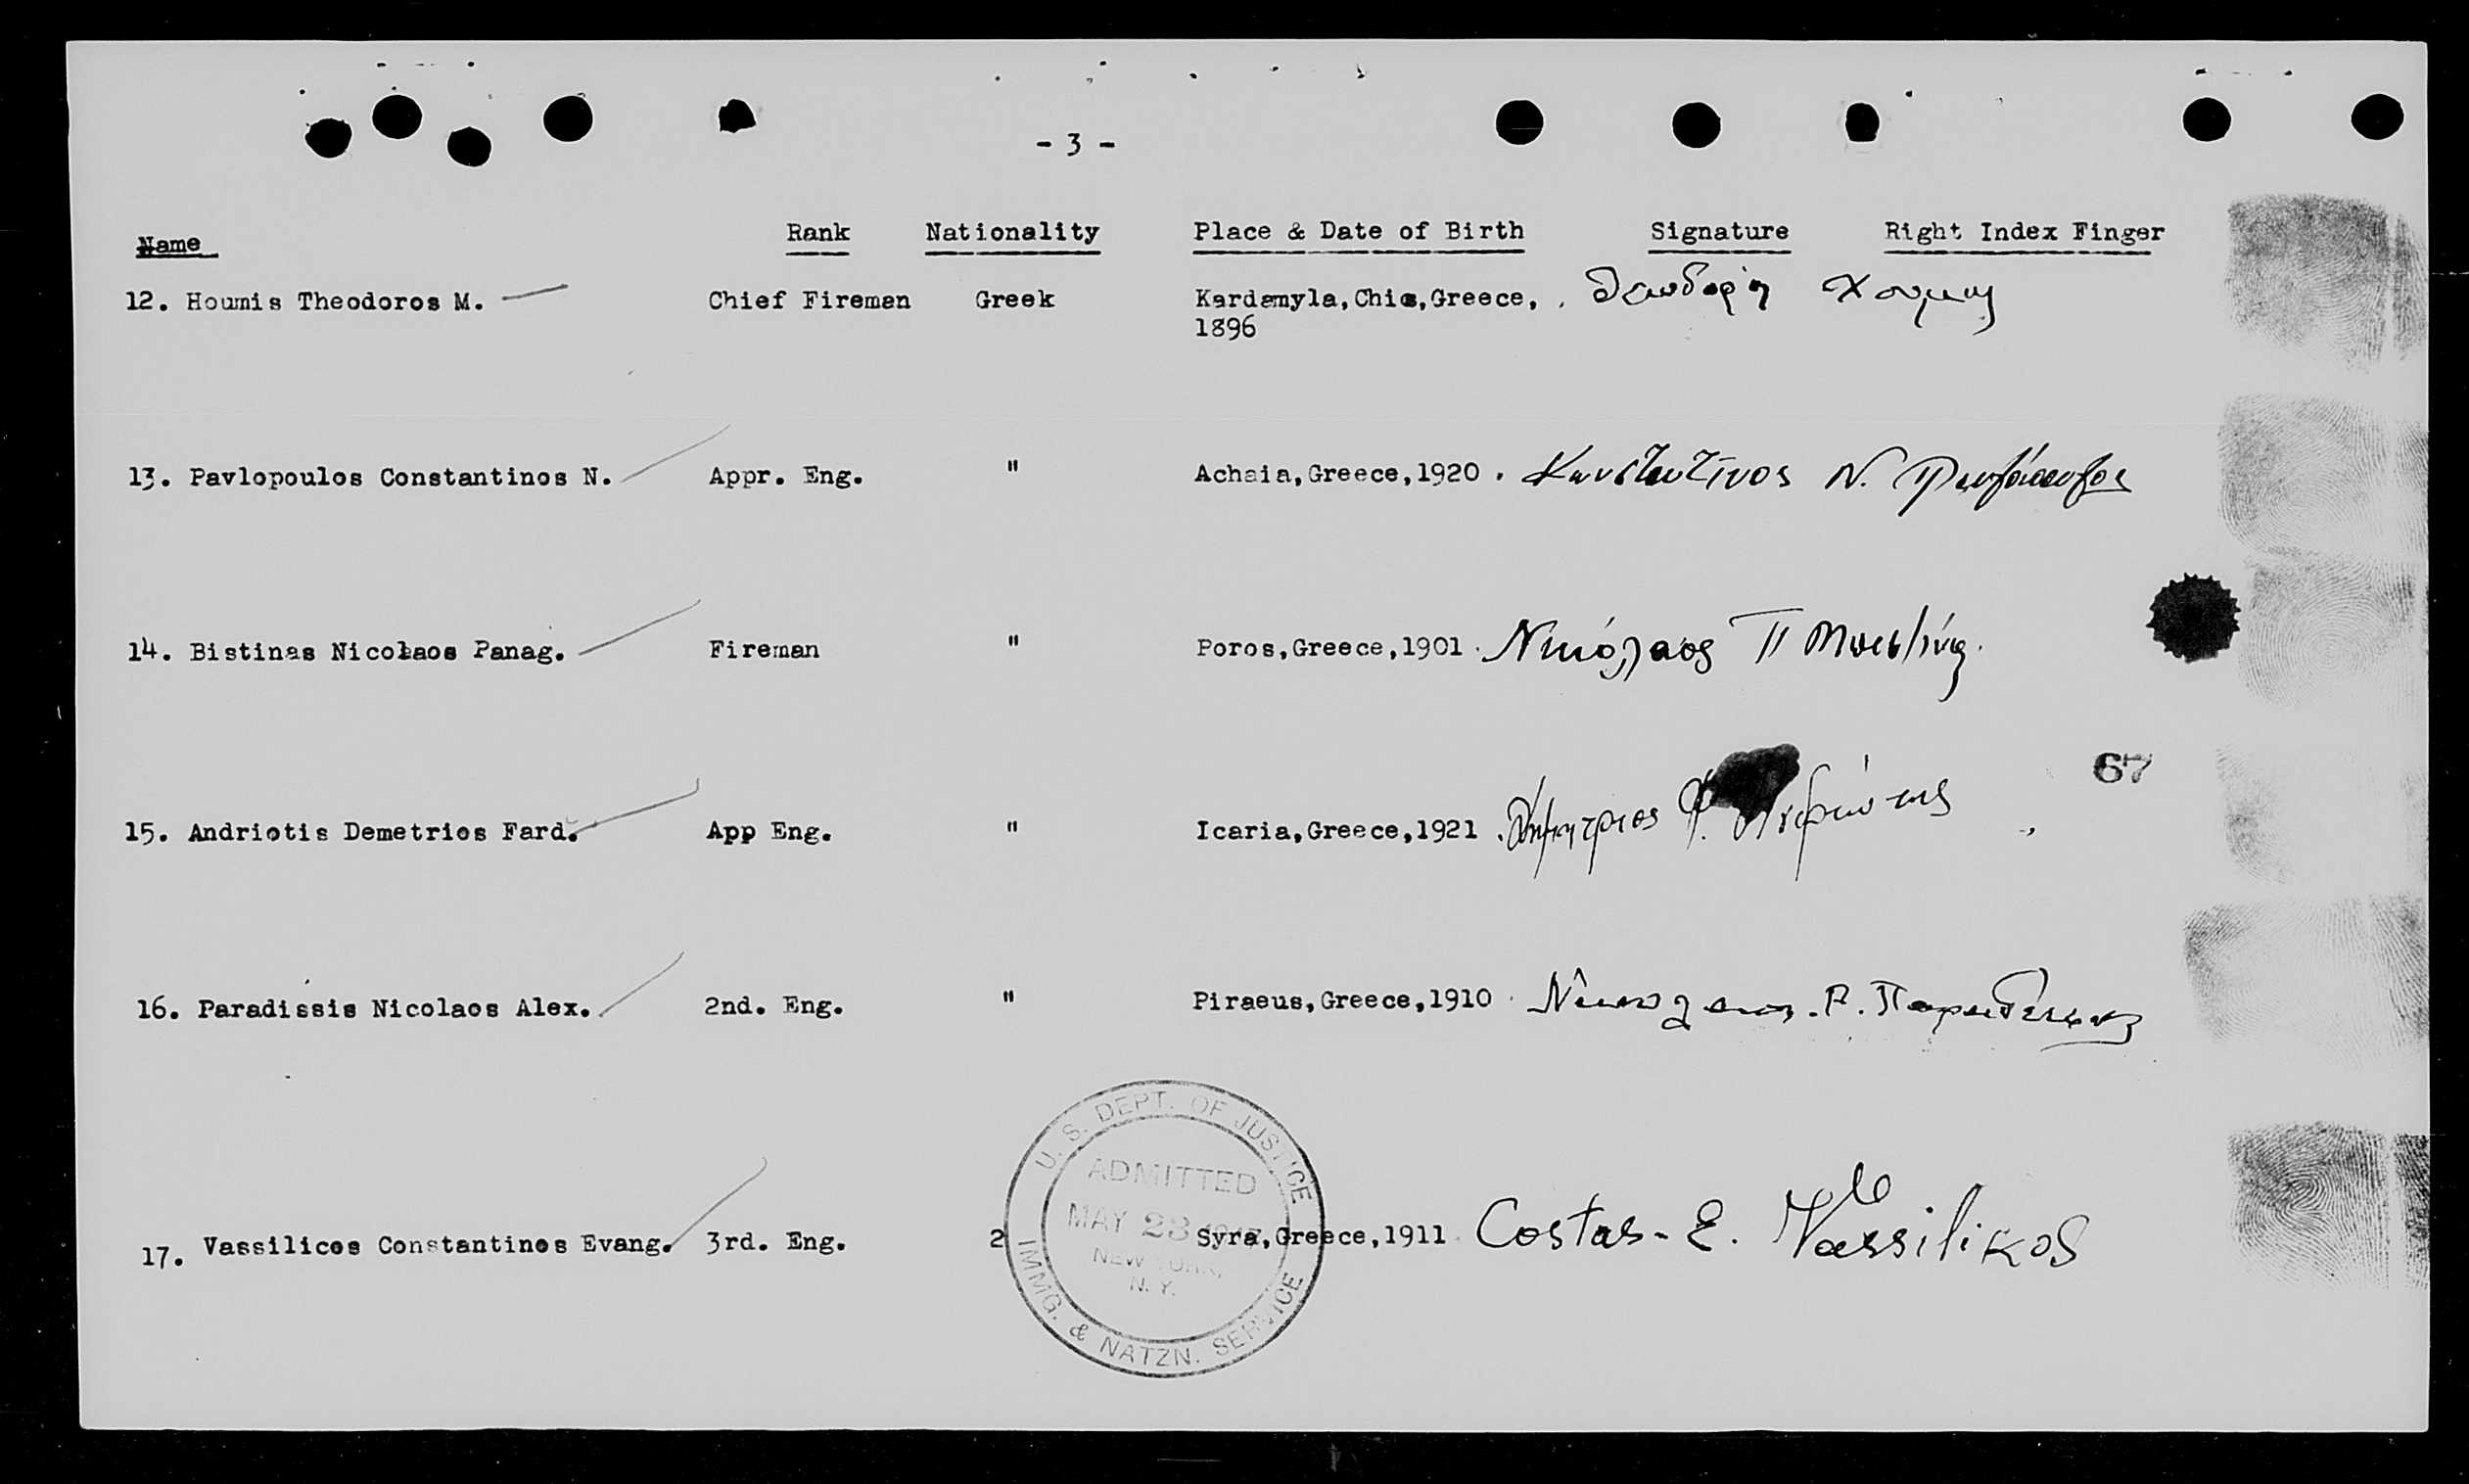 - 3 -
Name Rank Nationality Place & Date of Birth Signature Right Index Finger
12. Houmis Theodoros M. Chief Fireman Greek Kardamyla, Chios, Greece, Θεωδορη Χουμης
1896
13. Pavlopoulos Constantinos N. Appr. Eng. " Achaia, Greece, 1920. Κωνσταντίνος Ν. Παυλόπουλος
14. Bistinas Nicolaos Panag. Fireman " Poros, Greece, 1901. Νικόλαος Π Μπιστίνης.
67
15. Andriotis Demetrios Fard. App Eng. " Icaria, Greece, 1921. Δημητριος Φ. Ανδριώτης
16. Paradissis Nicolaos Alex. 2nd. Eng. " Piraeus, Greece, 1910. Νικολαος. Α. Παραδείσης
17. Vassilicos Constantinos Evang. 3rd. Eng. 2 Syra, Greece, 1911. Costas - E. Vassilikos
U. S. DEPT. OF JUSTICE
ADMITTED
MAY 23
NEW YORK,
N. Y.
IMMG. & NATZN. SERVICE